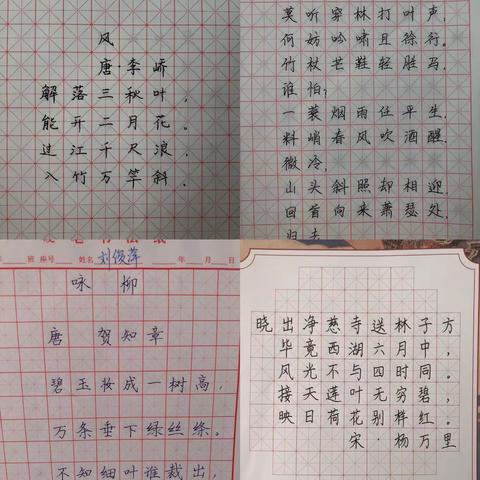 风
唐·李峤
解落三秋叶，
能开二月花。
过江千尺浪，
入竹万竿斜。
莫听穿林打叶声，
何妨吟啸且徐行。
竹杖芒鞋轻胜马，
谁怕？
一蓑烟雨任平生。
料峭春风吹酒醒，
微冷，
山头斜照却相迎。
回首向来萧瑟处，
归去
年 班 座号 姓名 刘俊萍 年 月 日
咏 柳
唐 贺知章
碧玉妆成一树高，
万条垂下绿丝绦。
不知细叶谁裁出，
晓出净慈寺送林子方
毕竟西湖六月中，
风光不与四时同。
接天莲叶无穷碧，
映日荷花别样红。
宋·杨万里